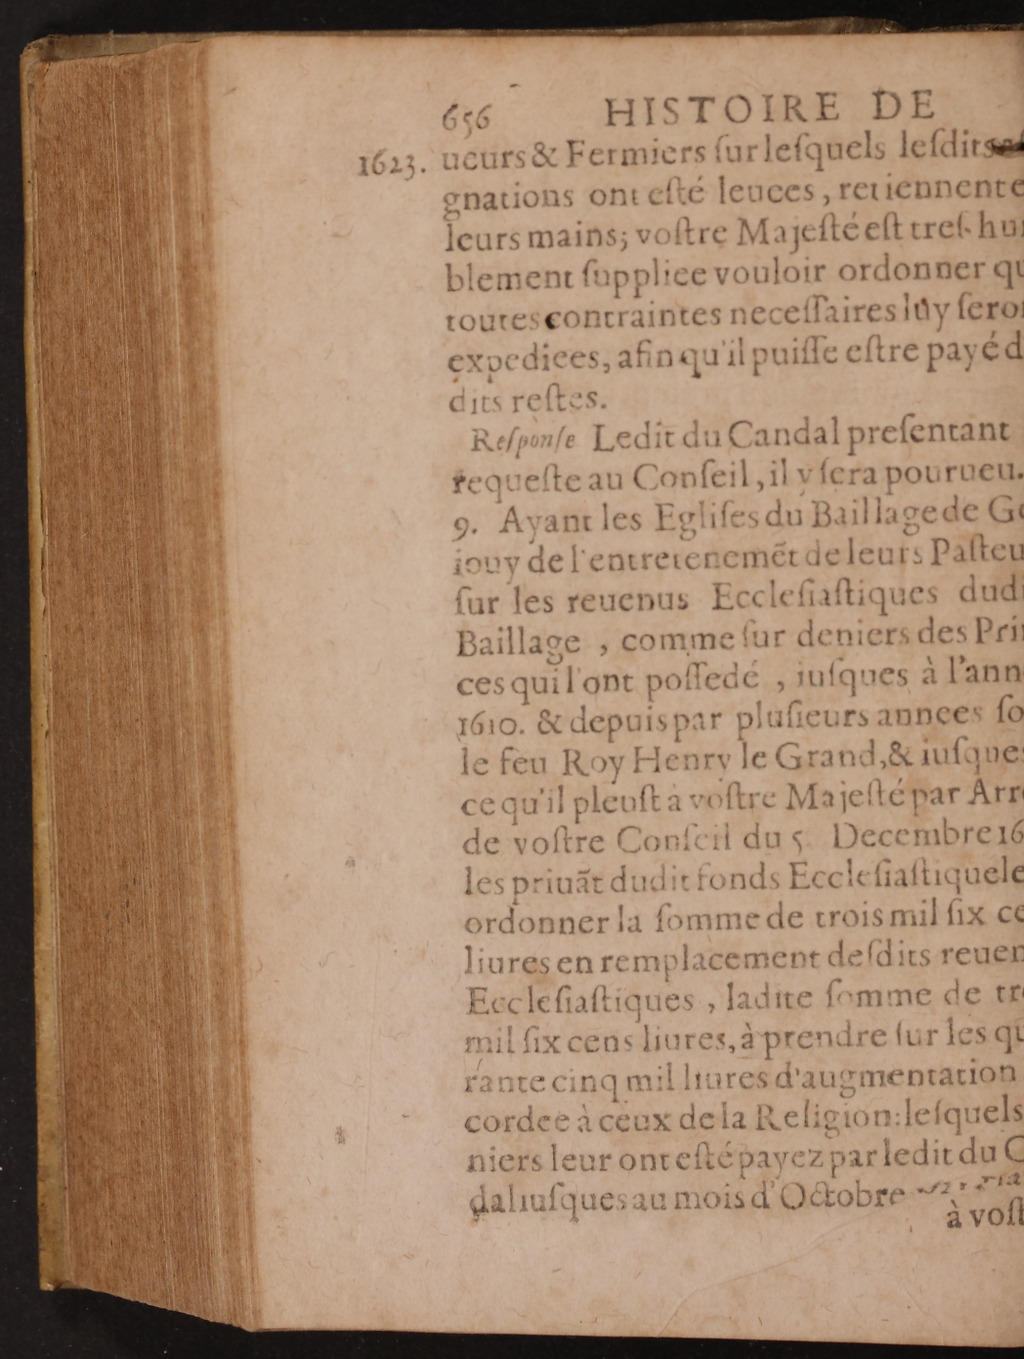 656 HISTOIRE DE
1623. ueurs & Fermiers ſur leſquels leſdits
gnations ont eſté leuees, retiennent e
leurs mains; voſtre Majeſté eſt treſ-hu
blement ſuppliee vouloir ordonner qu
toutes contraintes neceſſaires luy ſero
expediees, afin qu'il puiſſe eſtre payé d
dits reſtes.
Reſponſe Ledit du Candal preſentant
requeſte au Conſeil, il y ſera pourueu.
9. Ayant les Egliſes du Baillage de Ge
iouy de l'entretenemẽt de leurs Paſteu
ſur les reuenus Eccleſiaſtiques dudi
Baillage , comme ſur deniers des Prin
ces qui l'ont poſſedé , iuſques à l'ann
1610. & depuis par pluſieurs annees ſo
le feu Roy Henry le Grand, & iuſques
ce qu'il pleuſt à voſtre Majeſté par Arre
de voſtre Conſeil du 5. Decembre 16
les priuãt dudit fonds Eccleſiaſtique le
ordonner la ſomme de trois mil ſix ce
liures en remplacement deſdits reuen
Eccleſiaſtiques , ladite ſomme de tr
mil ſix cens liures, à prendre ſur les qu
rante cinq mil liures d'augmentation
cordee à ceux de la Religion: leſquels
niers leur ont eſté payez par ledit du C
dal iuſques au mois d'Octobre
à voſt